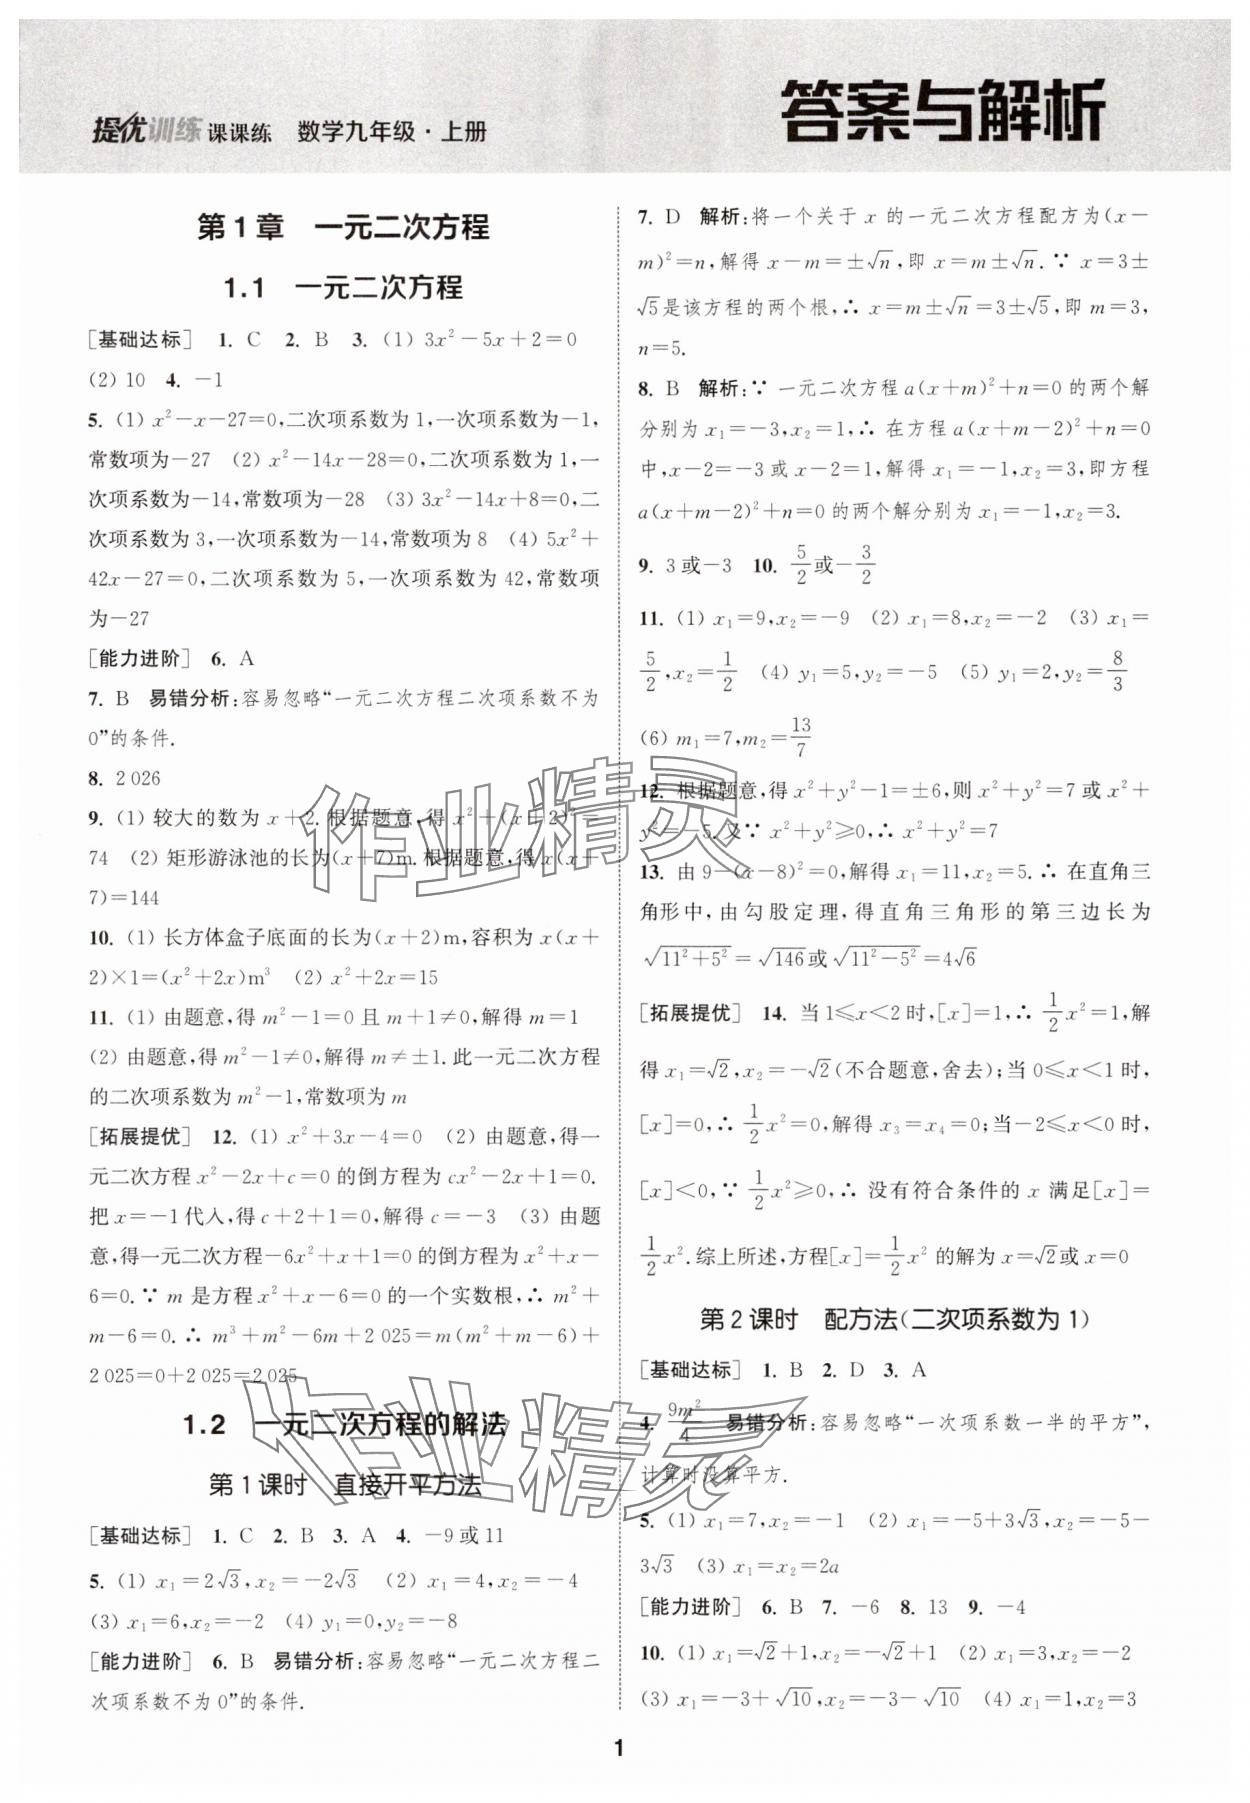 提优训练课课练 数学九年级·上册
答案与解析
第1章 一元二次方程
1.1 一元二次方程
[基础达标] 1. C 2. B 3. (1) 3x²-5x+2=0
(2) 10 4. -1
5. (1) x²-x-27=0,二次项系数为1,一次项系数为-1,
常数项为-27 (2) x²-14x-28=0,二次项系数为1,一
次项系数为-14,常数项为-28 (3) 3x²-14x+8=0,二
次项系数为3,一次项系数为-14,常数项为8 (4) 5x²+
42x-27=0,二次项系数为5,一次项系数为42,常数项
为-27
[能力进阶] 6. A
7. B 易错分析:容易忽略“一元二次方程二次项系数不为
0”的条件.
8. 2 026
9. (1) 较大的数为x+2.根据题意,得x²+(x+2)²=
74 (2) 矩形游泳池的长为(x+7)m.根据题意,得x(x+
7)=144
10. (1) 长方体盒子底面的长为(x+2)m,容积为x(x+
2)×1=(x²+2x)m³ (2) x²+2x=15
11. (1) 由题意,得m²-1=0且m+1≠0,解得m=1
(2) 由题意,得m²-1≠0,解得m≠±1.此一元二次方程
的二次项系数为m²-1,常数项为m
[拓展提优] 12. (1) x²+3x-4=0 (2) 由题意,得一
元二次方程x²-2x+c=0的倒方程为cx²-2x+1=0.
把x=-1代入,得c+2+1=0,解得c=-3 (3) 由题
意,得一元二次方程-6x²+x+1=0的倒方程为x²+x-
6=0.∵ m是方程x²+x-6=0的一个实数根,∴ m²+
m-6=0.∴ m³+m²-6m+2 025=m(m²+m-6)+
2 025=0+2 025=2 025
1.2 一元二次方程的解法
第1课时 直接开平方法
[基础达标] 1. C 2. B 3. A 4. -9或11
5. (1) x₁=2√3,x₂=-2√3 (2) x₁=4,x₂=-4
(3) x₁=6,x₂=-2 (4) y₁=0,y₂=-8
[能力进阶] 6. B 易错分析:容易忽略“一元二次方程二
次项系数不为0”的条件.
7. D 解析:将一个关于x的一元二次方程配方为(x-
m)²=n,解得x-m=±√n,即x=m±√n.∵ x=3±
√5是该方程的两个根,∴ x=m±√n=3±√5,即m=3,
n=5.
8. B 解析:∵ 一元二次方程a(x+m)²+n=0的两个解
分别为x₁=-3,x₂=1,∴ 在方程a(x+m-2)²+n=0
中,x-2=-3或x-2=1,解得x₁=-1,x₂=3,即方程
a(x+m-2)²+n=0的两个解分别为x₁=-1,x₂=3.
9. 3或-3 10. 5/2或-3/2
11. (1) x₁=9,x₂=-9 (2) x₁=8,x₂=-2 (3) x₁=
5/2,x₂=1/2 (4) y₁=5,y₂=-5 (5) y₁=2,y₂=8/3
(6) m₁=7,m₂=13/7
12. 根据题意,得x²+y²-1=±6,则x²+y²=7或x²+
y²=-5.又∵ x²+y²≥0,∴ x²+y²=7
13. 由9-(x-8)²=0,解得x₁=11,x₂=5.∴ 在直角三
角形中,由勾股定理,得直角三角形的第三边长为
√(11²+5²)=√146或√(11²-5²)=4√6
[拓展提优] 14. 当1≤x<2时,[x]=1,∴ 1/2x²=1,解
得x₁=√2,x₂=-√2(不合题意,舍去);当0≤x<1时,
[x]=0,∴ 1/2x²=0,解得x₃=x₄=0;当-2≤x<0时,
[x]<0,∵ 1/2x²≥0,∴ 没有符合条件的x满足[x]=
1/2x².综上所述,方程[x]=1/2x²的解为x=√2或x=0
第2课时 配方法(二次项系数为1)
[基础达标] 1. B 2. D 3. A
4. 9m²/4 易错分析:容易忽略“一次项系数一半的平方”,
计算时没算平方.
5. (1) x₁=7,x₂=-1 (2) x₁=-5+3√3,x₂=-5-
3√3 (3) x₁=x₂=2a
[能力进阶] 6. B 7. -6 8. 13 9. -4
10. (1) x₁=√2+1,x₂=-√2+1 (2) x₁=3,x₂=-2
(3) x₁=-3+√10,x₂=-3-√10 (4) x₁=1,x₂=3
1
作业精灵
作业精灵